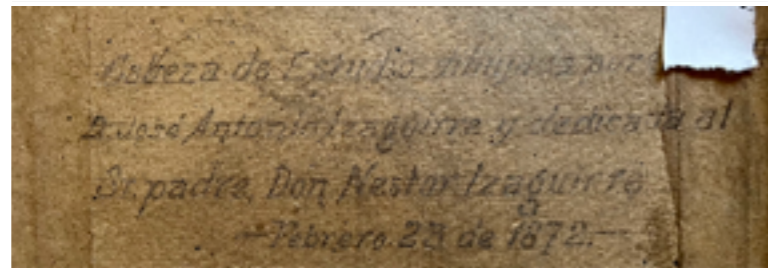 Cabeza de Estudio dibujada por
D. José Antonio Izaguirre y dedicada al
Sr. padre, Don Nestor Izaguirre
—Febrero 23 de 1872.—